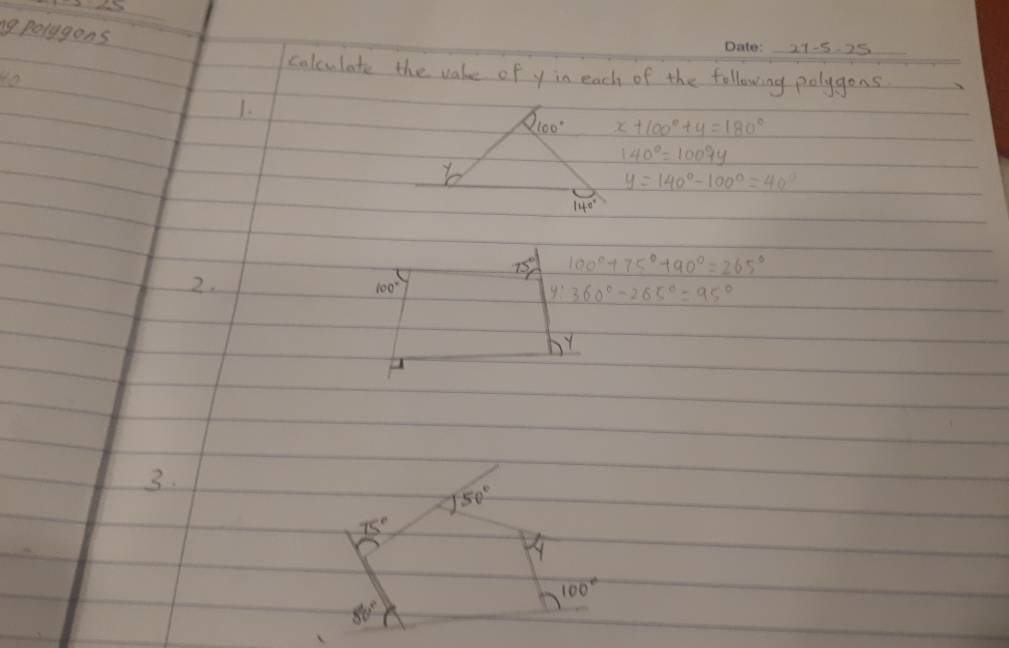 ng polygons
40
Date: 27-5-25
Calculate the value of y in each of the following polygons.
1.
100°
y
140°
x+100°+y=180°
140°=100°+y
y=140°-100°=40°
2.
100°
75°
y
100°+75°+90°=265°
y: 360°-265°=95°
3.
50°
75°
y
100°
80°